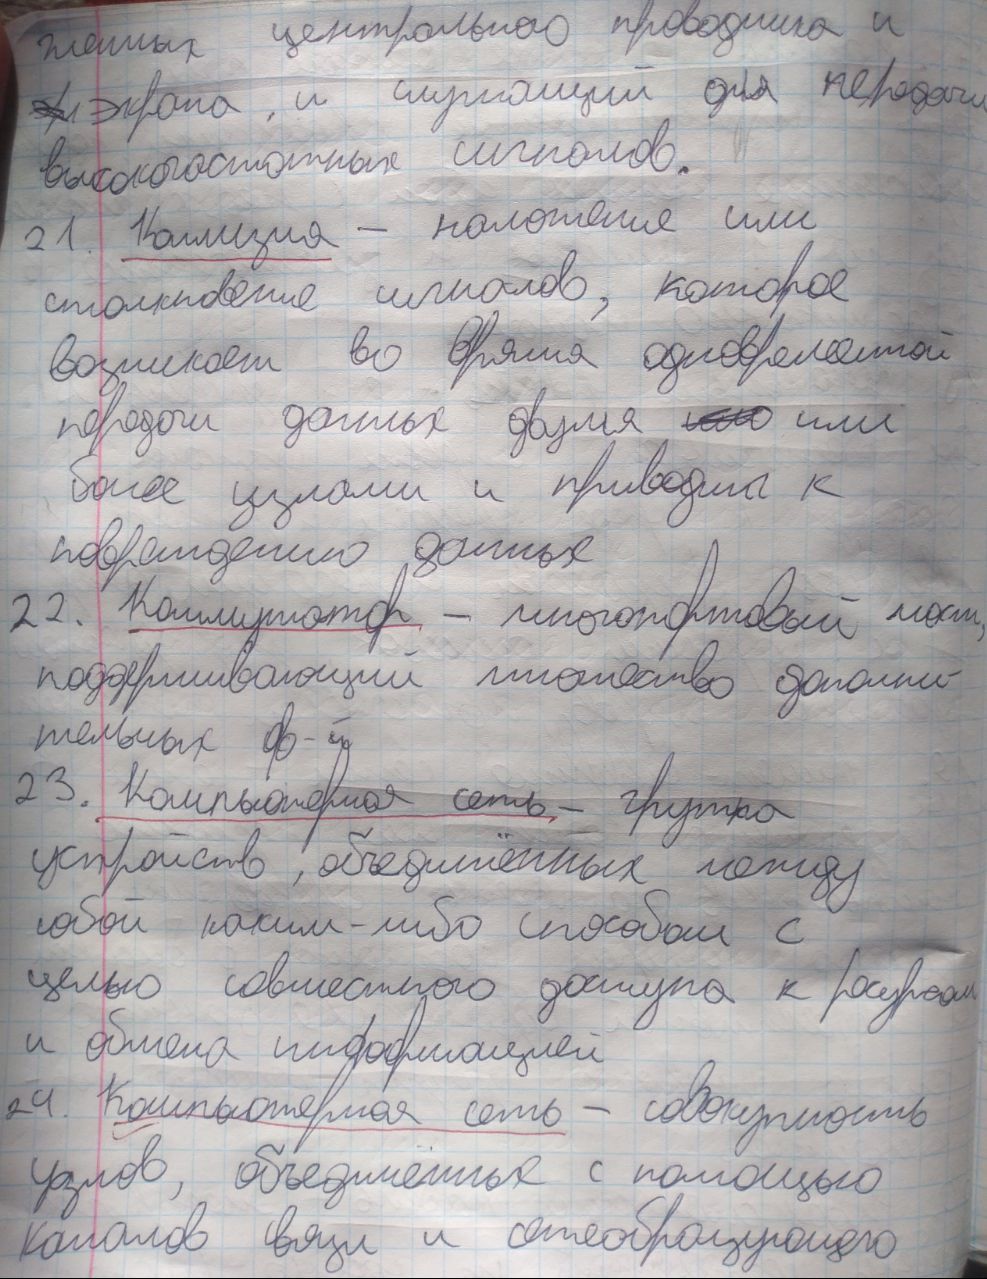 женных центрального проводника и
экрана, и служащий для передачи
высокочастотных сигналов.
21. Коллизия – наложение или
столкновение сигналов, которое
возникает во время одновременной
передачи данных двумя или
более узлами и приводит к
повреждению данных
22. Коммутатор – многопортовый мост,
поддерживающий множество дополни-
тельных ф-й
23. Компьютерная сеть – группа
устройств, объединённых между
собой каким-либо способом с
целью совместного доступа к ресурсам
и обмена информацией
24. Компьютерная сеть – совокупность
узлов, объединённых с помощью
каналов связи и сетеобразующего